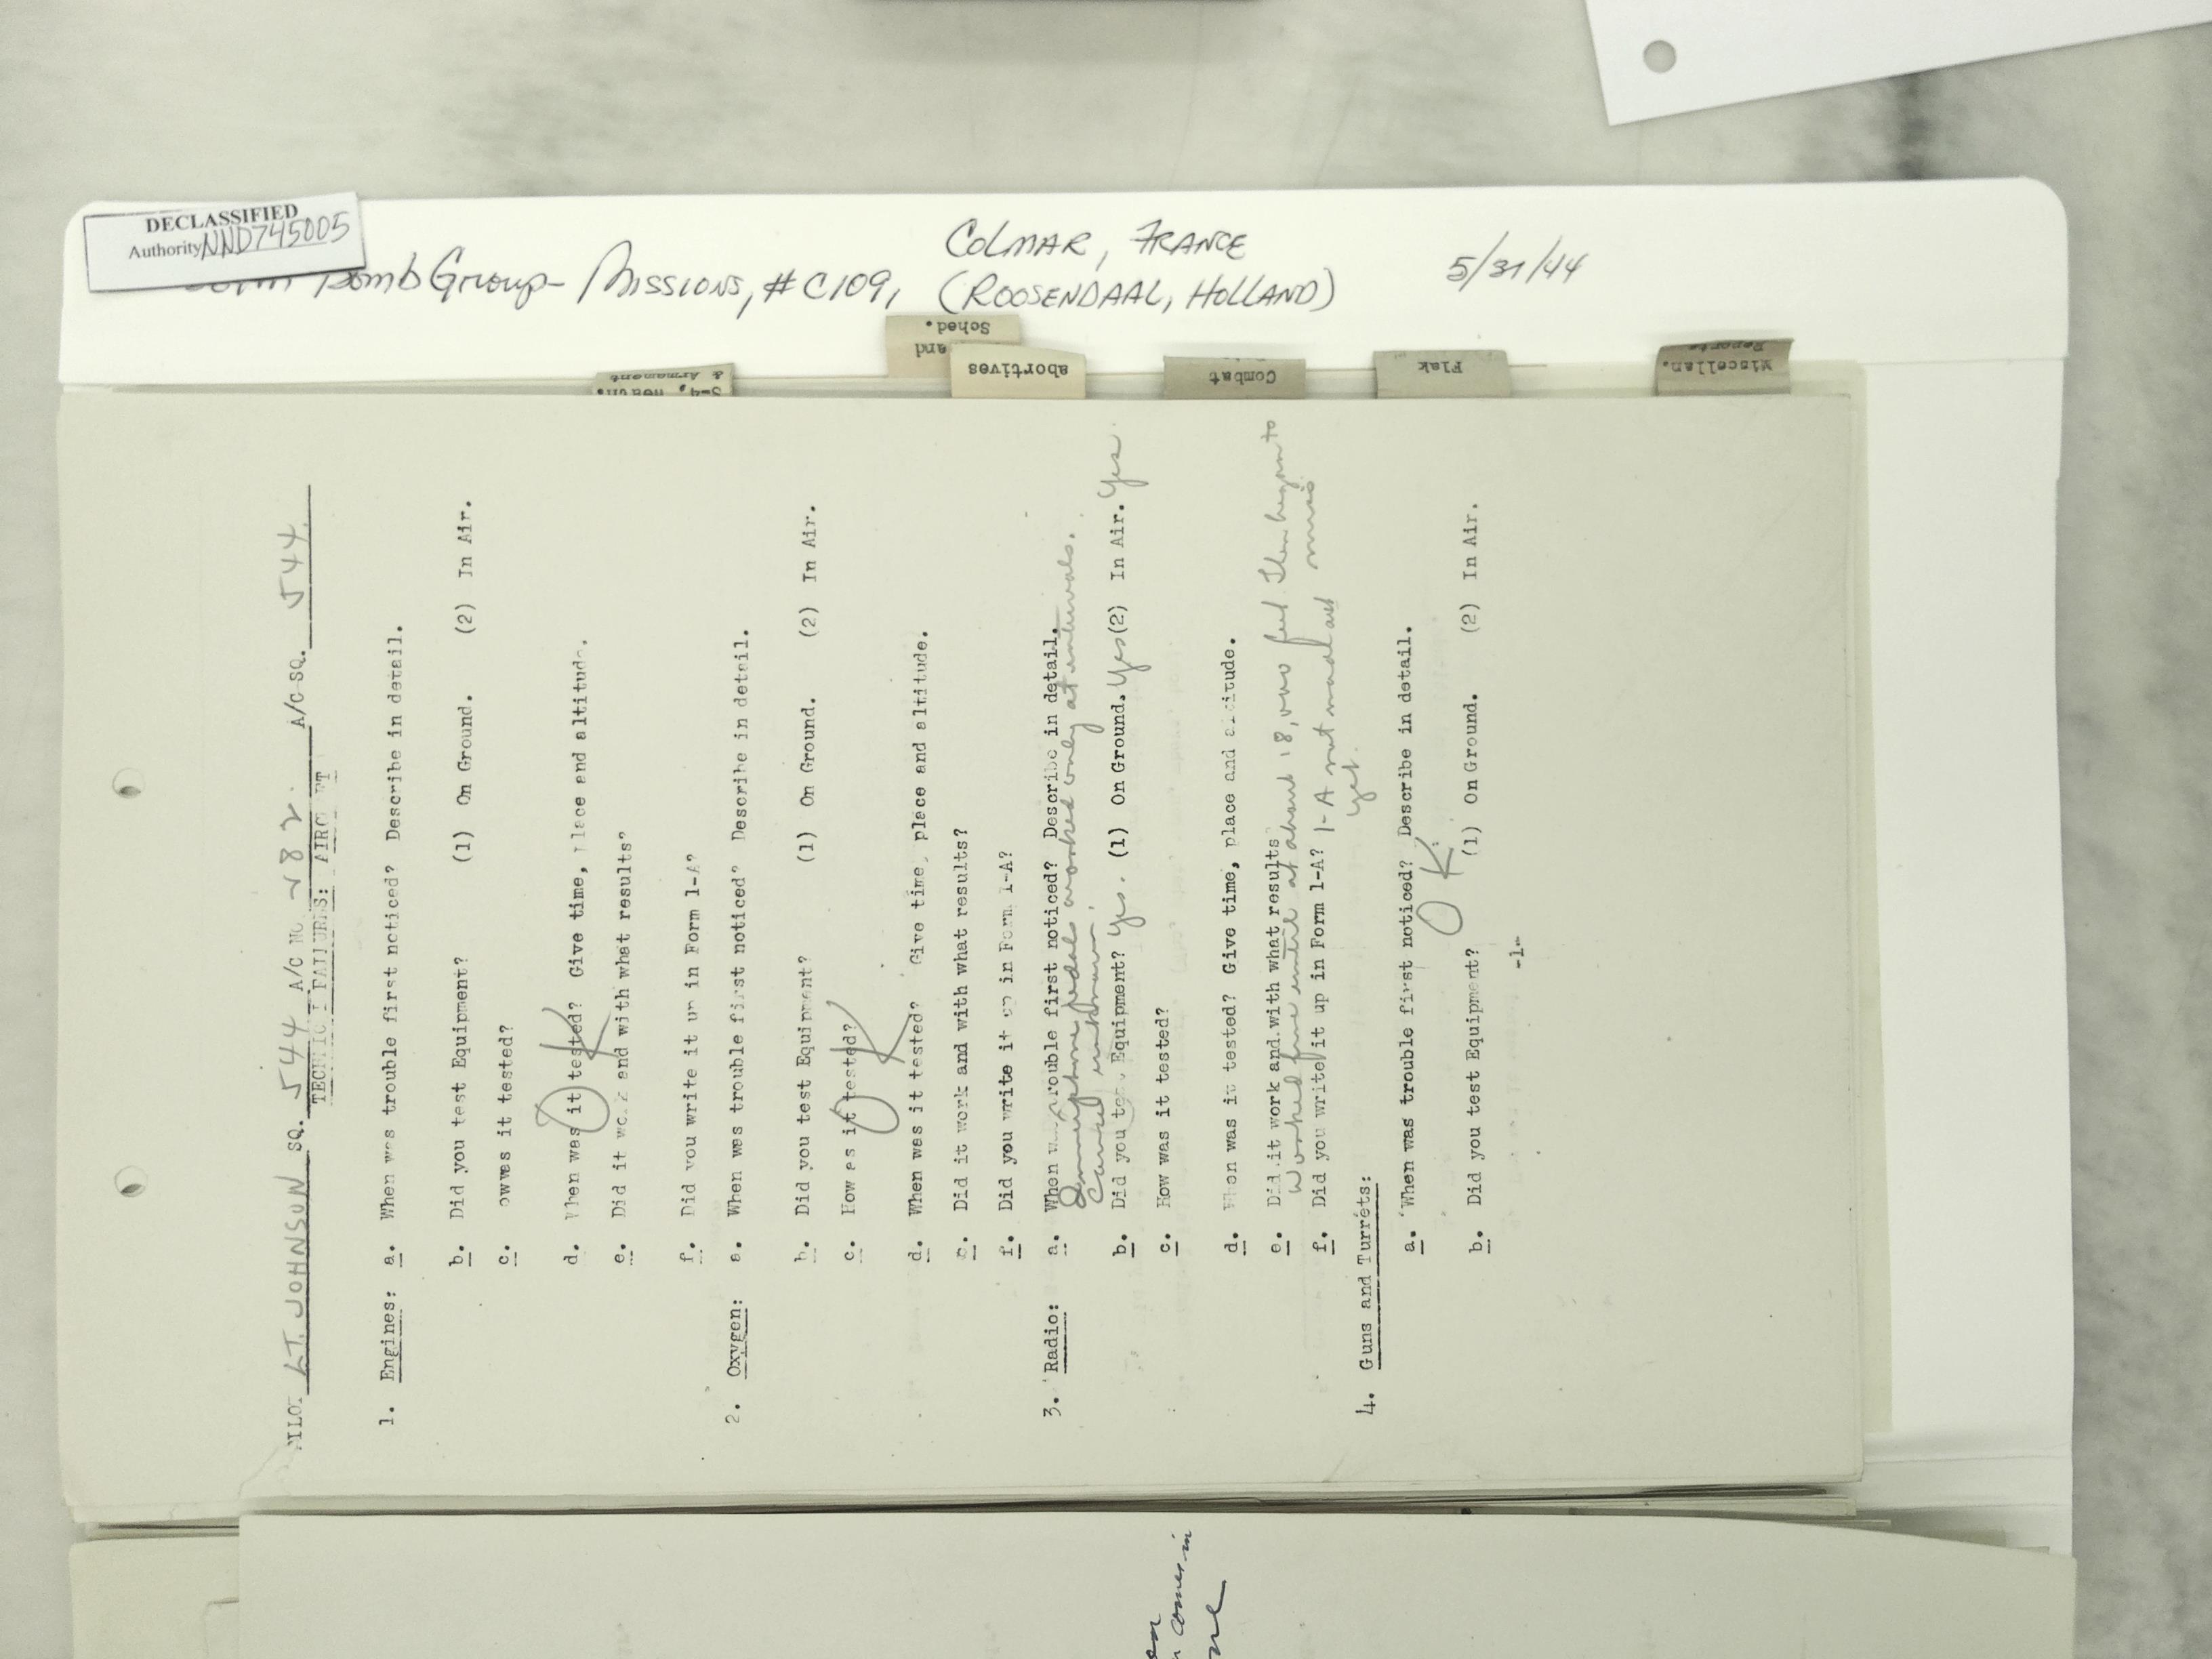 DECLASSIFIED
Authority NND745005
Bomb Group - Missions, #C109,
COLMAR, FRANCE
(ROOSENDAAL, HOLLAND)
5/31/44
Sched.
and
abortives
Combat
Flak
Miscellan.
Reports
& Armament
LT. JOHNSON SQ. 544 A/C NO. A/C SQ. 544
FAILURES:
1. Engines: a. When was trouble first noticed? Describe in detail.
b. Did you test Equipment? (1) On Ground. (2) In Air.
c. owwes it tested?
d. When was it tested? Give time, place and altitude.
OK
e. Did it work and with what results?
f. Did you write it up in Form 1-A?
2. Oxygen: a. When was trouble first noticed? Describe in detail.
b. Did you test Equipment? (1) On Ground. (2) In Air.
c. How as it tested?
OK
d. When was it tested? Give time, place and altitude.
e. Did it work and with what results?
f. Did you write it up in Form 1-A?
3. Radio: a. When was trouble first noticed? Describe in detail.
worked only at intervals.
b. Did you test Equipment? Yes. (1) On Ground. Yes (2) In Air. Yes.
c. How was it tested?
d. When was it tested? Give time, place and altitude.
e. Did it work and with what results
Worked fine until at about 18,000 feet then began to
f. Did you write it up in Form 1-A? 1-A not made out
yet.
4. Guns and Turrets:
a. When was trouble first noticed? Describe in detail.
OK
b. Did you test Equipment? (1) On Ground. (2) In Air.
-1-
comes in